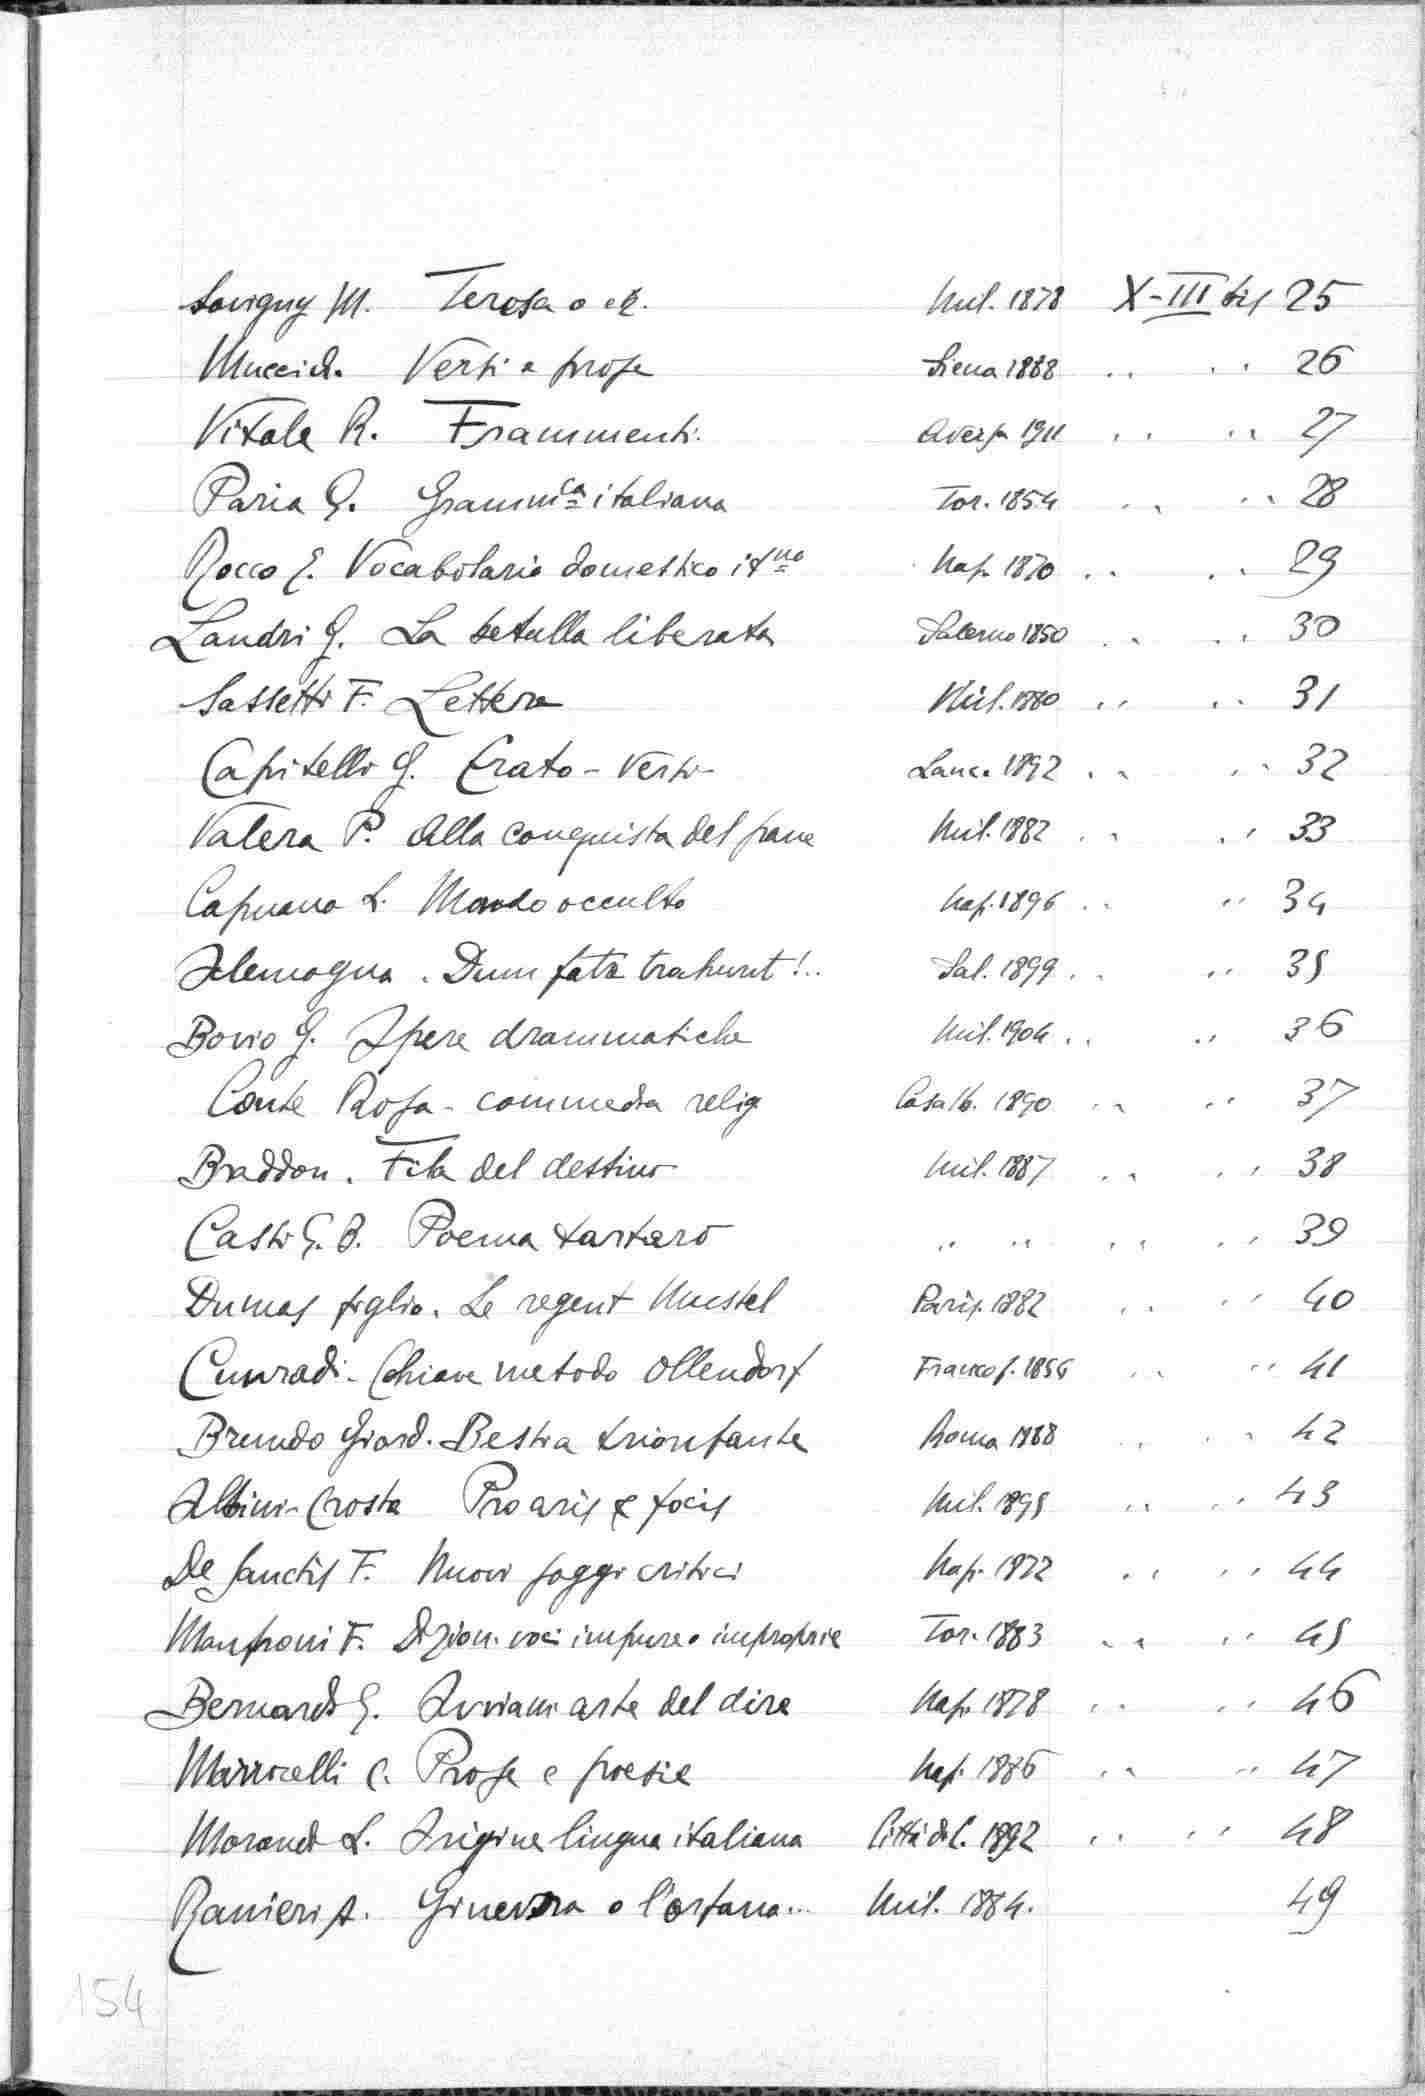 Savigny M. Teresa o ec. Mil. 1878 X-III bis 25
Mucci d. Versi e prose Siena 1888 " " 26
Vitale R. Frammenti. Aversa 1911 " " 27
Paria G. Grammca italiana Tor. 1854 " " 28
Rocco E. Vocabolario domestico itno Nap. 1870 " " 29
Landri G. La betulla liberata Salerno 1850 " " 30
Sassetti F. Lettere Mil. 1880 " " 31
Capitelli G. Erato - Versi - Lanc. 1892 " " 32
Valera P. Alla conquista del pane Mil. 1882 " " 33
Capuana L. Mondo occulto Nap. 1896 " " 34
Alemagna. Dum fata trahunt!.. Sal. 1899 " " 35
Bovio G. Opere drammatiche Mil. 1904 " " 36
Conte Rosa - commedia relig Casalb. 1890 " " 37
Braddon. Fila del destino Mil. 1887 " " 38
Casti G. B. Poema tartaro " " " " 39
Dumas figlio. Le regent Mustel Paris. 1882 " " 40
Cunradi - Chiave metodo Ollendorf Francof. 1856 " " 41
Brundo Giord. Bestia trionfante Roma 1888 " " 42
Albini-Crosta Pro aris et focis Mil. 1895 " " 43
De Sanctis F. Nuovi saggi critici Nap. 1872 " " 44
Manfroni F. Dizion. voci impure e improprie Tor. 1883 " " 45
Bernardi G. Avviam. arte del dire Nap. 1878 " " 46
Marrocelli C. Prose e poesie Nap. 1886 " " 47
Morandi L. Origine lingua italiana Città di C. 1892 " " 48
Ranieri A. Ginevra o l'orfana... Mil. 1884. 49
154